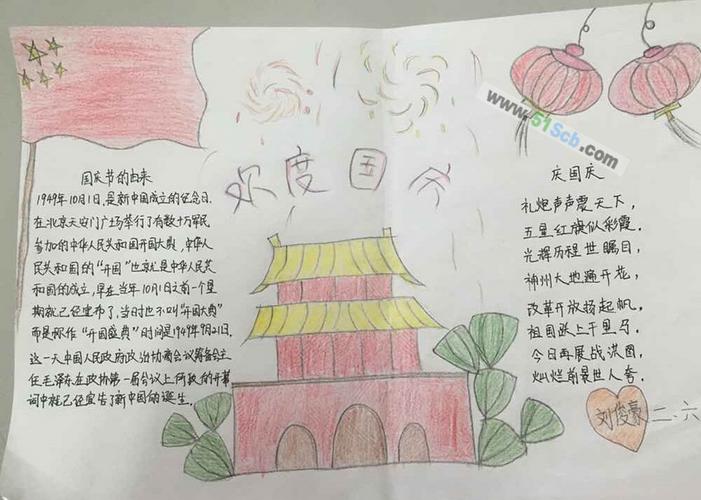 欢度国今
www.51Scb.com
国庆节的由来
1949年10月1日,是新中国成立的纪念日.
在北京天安门广场举行了有数十万军民
参加的中华人民共和国开国大典,中华人
民共和国的“开国”也就是中华人民共
和国的成立,早在当年10月1日之前一个星
期就已经宣布了,当时也不叫“开国大典”
而是称作“开国盛典”时间是1949年9月21日.
这一天中国人民政府政治协商会议筹备会主
任毛泽东在政协第一届会议上所致的开幕
词中就已经宣告了新中国的诞生.
庆国庆
礼炮声声震天下,
五星红旗似彩霞.
光辉历程世瞩目,
神州大地遍开花,
改革开放扬起帆,
祖国跃上千里马,
今日再展战洪图,
灿烂前景世人夸.
刘俊豪 二、六